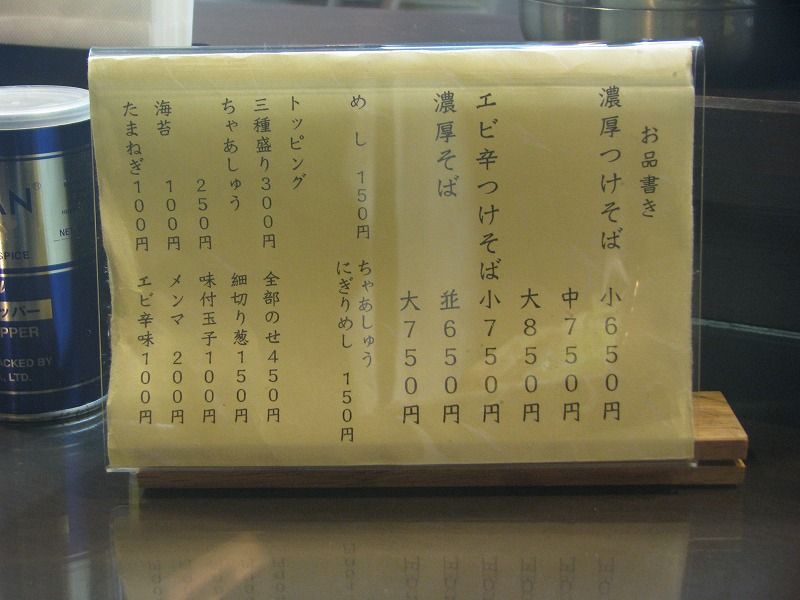 お品書き
濃厚つけそば 小650円
中750円
大850円
エビ辛つけそば 小750円
濃厚そば 並650円
大750円
めし 150円
ちゃあしゅう
にぎりめし 150円
トッピング
三種盛り300円
全部のせ450円
ちゃあしゅう
250円
細切り葱150円
味付玉子100円
海苔 100円
メンマ 200円
たまねぎ100円
エビ辛味100円
AN
SPICE
ッパー
PPER
ACKED BY
LTD.